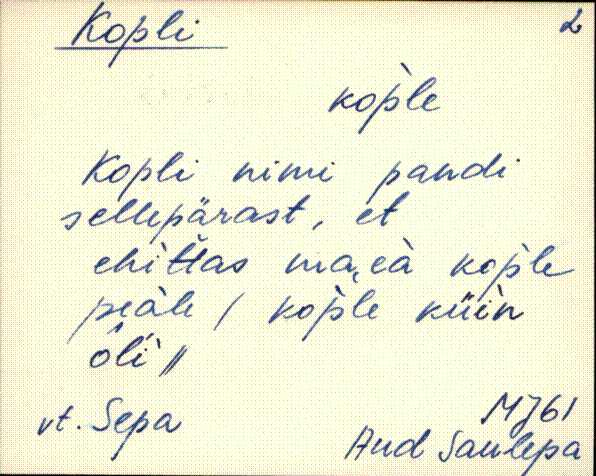 Kopli 2
kop̀le
Kopli nimi pandi
sellepärast, et
ehìt̆tas ma, eà kop̀le
peàle / kop̀le küìn
ôlì //
vt. Sepa MJ61
And Saulepa